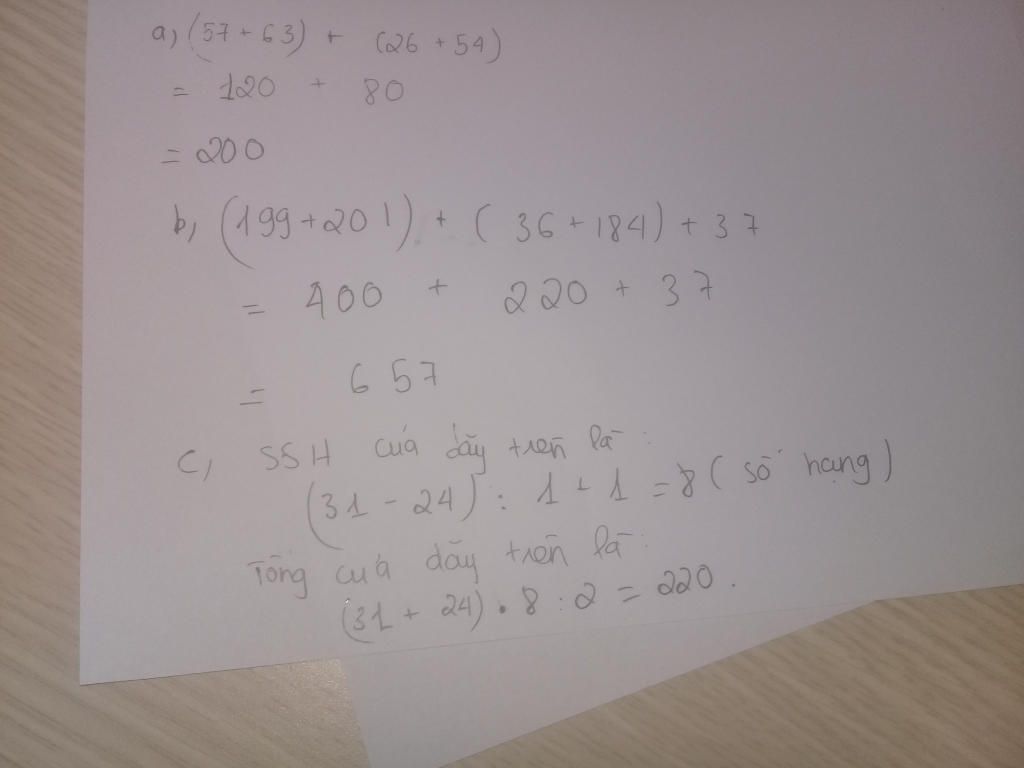 a, (57 + 63) + (26 + 54)
= 120 + 80
= 200
b, (199 + 201) + (36 + 184) + 37
= 400 + 220 + 37
= 657
c, SSH của dãy trên là:
(31 - 24) : 1 + 1 = 8 (số hạng)
Tổng của dãy trên là:
(31 + 24) . 8 : 2 = 220.